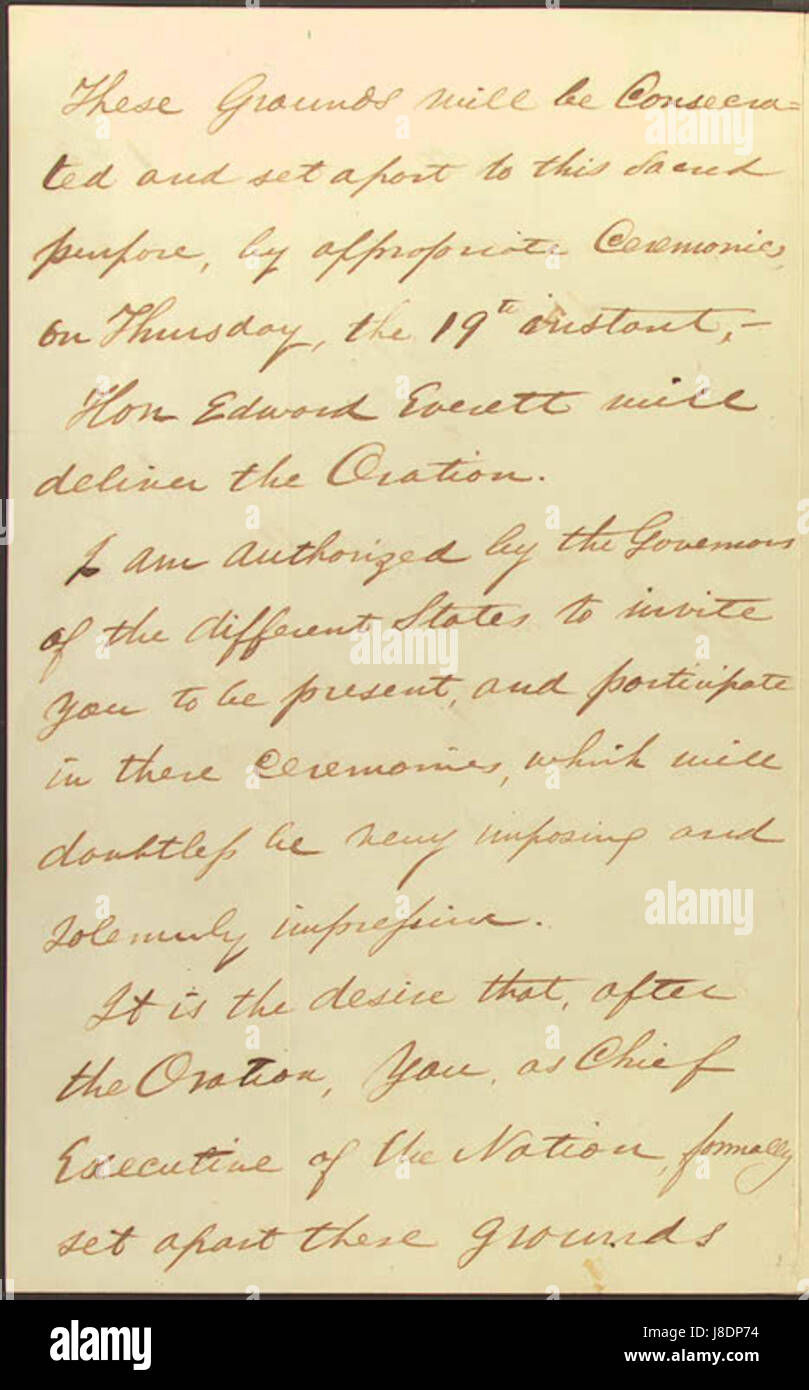 These Grounds will be Consecra=
ted and set apart to this Sacred
purpose, by appropriate Ceremonies,
on Thursday, the 19th instant,–
Hon Edward Everett will
deliver the Oration.
I am authorized by the Governors
of the different States to invite
You to be present, and participate
in these Ceremonies, which will
doubtless be very imposing and
solemnly impressive.
It is the desire that, after
the Oration, You, as Chief
Executive of the Nation, formally
set apart these grounds
alamy
alamy
alamy
alamy
Image ID: J8DP74
www.alamy.com